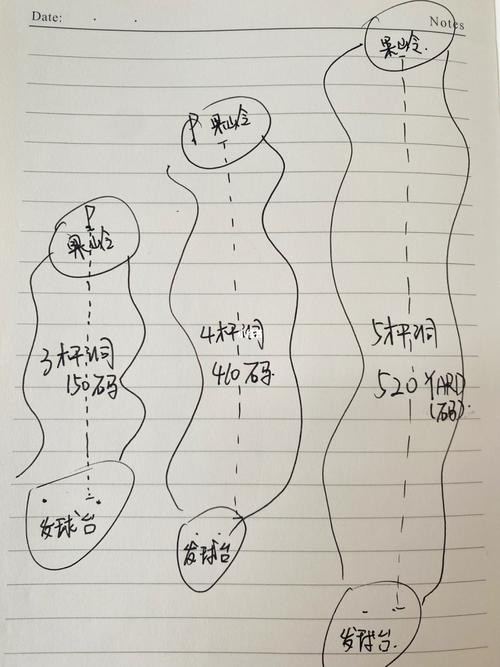 Date:
Notes
果岭
3杆洞
150码
发球台
果岭
4杆洞
410石码
发球台
果岭
5杆洞
520 YARD
(石码)
发球台